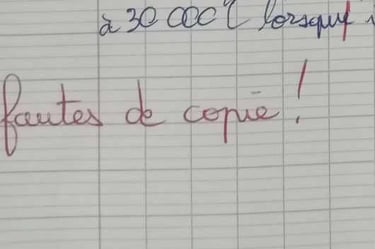 à 30 000 L lorsqu'
fautes de copie !